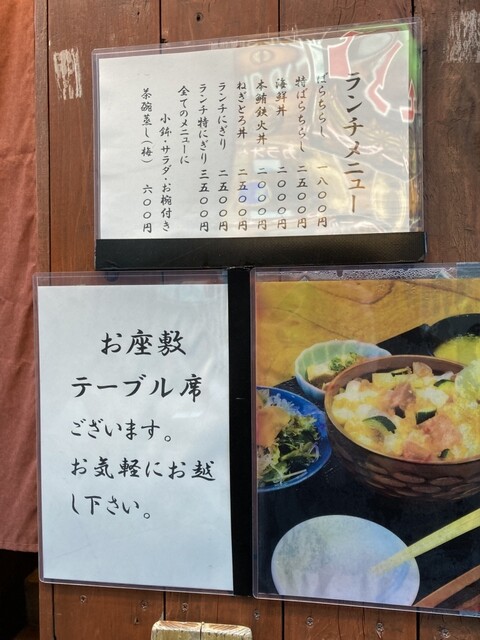 ランチメニュー
ばらちらし 一八〇〇円
特ばらちらし 二五〇〇円
海鮮丼 二〇〇〇円
本鮪鉄火丼 二〇〇〇円
ねぎとろ丼 二五〇〇円
ランチにぎり 二五〇〇円
ランチ特にぎり 三五〇〇円
全てのメニューに
小鉢・サラダ・お椀付き
茶碗蒸し(梅) 六〇〇円
お座敷
テーブル席
ございます。
お気軽にお越
し下さい。